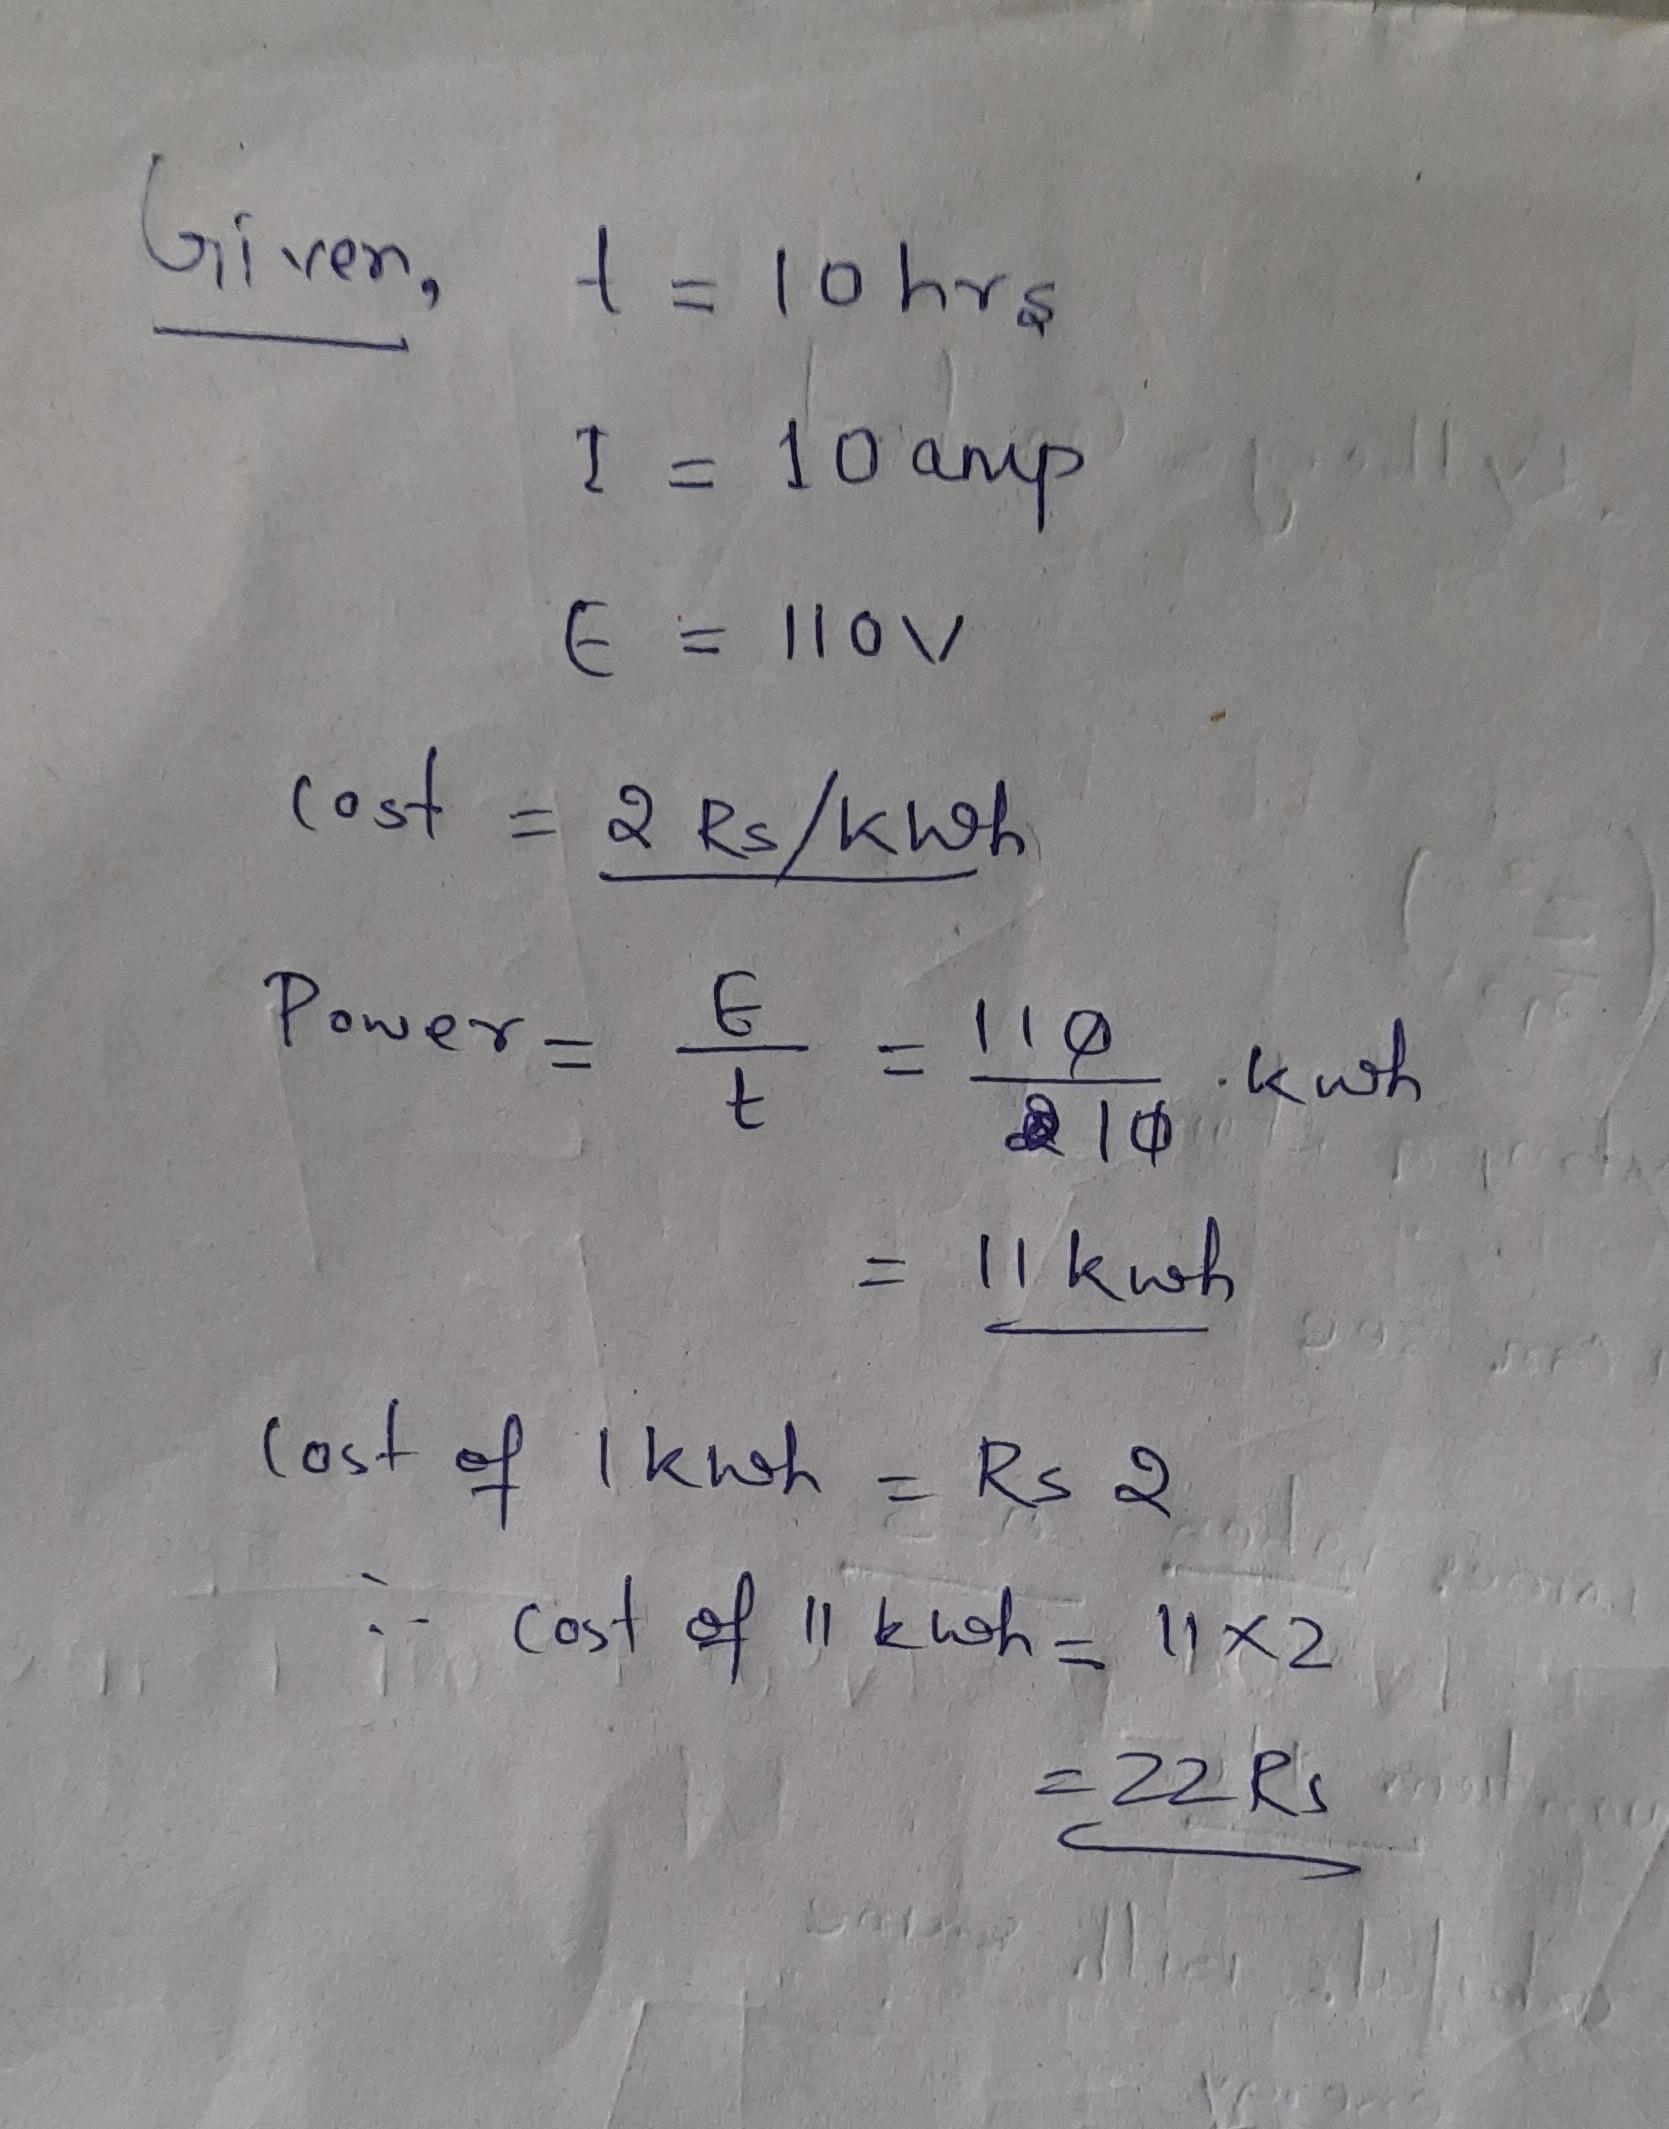 Given, t = 10 hrs
I = 10 amp
E = 110V
cost = 2 Rs/kwh
Power = E/t = 110/10 . kwh
= 11 kwh
cost of 1 kwh = Rs 2
∴ cost of 11 kwh = 11×2
= 22 Rs